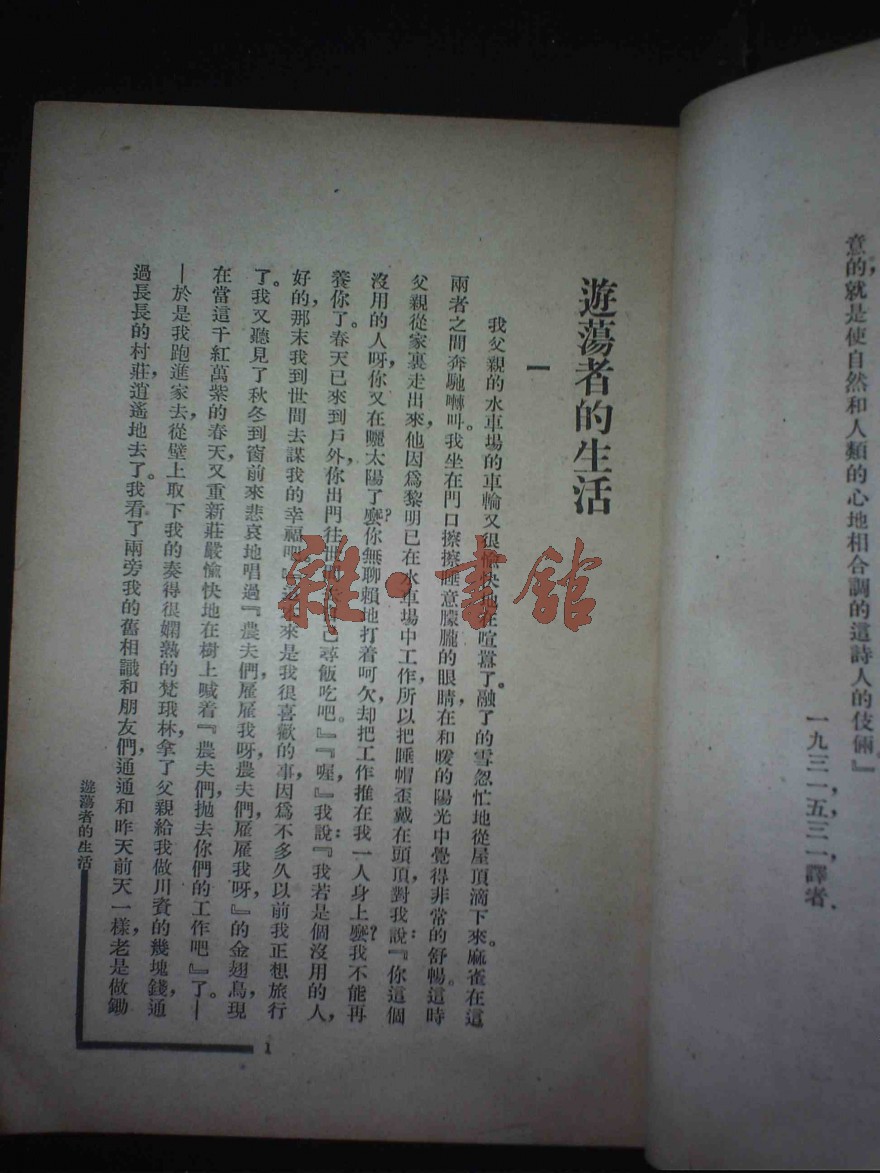 意的就是使自然和人類的心地相合調的這詩人的伎倆。』
一九三一,五,三一,譯者.
遊蕩者的生活
一
我父親的水車場的車輪又很愉快地在喧囂了。融了的雪忽忙地從屋頂滴下來。麻雀在這
兩者之間奔馳囀叫。我坐在門口擦擦睡意朦朧的眼睛在和暖的陽光中覺得非常的舒暢。這時
父親從家裏走出來,他因爲黎明已在水車場中工作,所以把睡帽歪戴在頭頂,對我說:『你這個
沒用的人呀,你又在曬太陽了麼?你無聊賴地打着呵欠,却把工作推在我一人身上麼?我不能再
養你了。春天已來到戶外,你出門往世間去自己尋飯吃吧。』『喔,』我說:『我若是個沒用的人,
好的,那末我到世間去謀我的幸福吧。』這本來是我很喜歡的事,因爲不多久以前我正想旅行
了。我又聽見了秋冬到窗前來悲哀地唱過『農夫們,雇雇我呀,農夫們,雇雇我呀,』的金翅鳥,現
在當這千紅萬紫的春天,又重新莊嚴愉快地在樹上喊着『農夫們,拋去你們的工作吧』了。—
—於是我跑進家去,從壁上取下我的奏得很嫻熟的梵珴林,拿了父親給我做川資的幾塊錢,通
過長長的村莊逍遙地去了。我看了兩旁我的舊相識和朋友們,通通和昨天前天一樣,老是做鋤
遊蕩者的生活
1
雜·書館